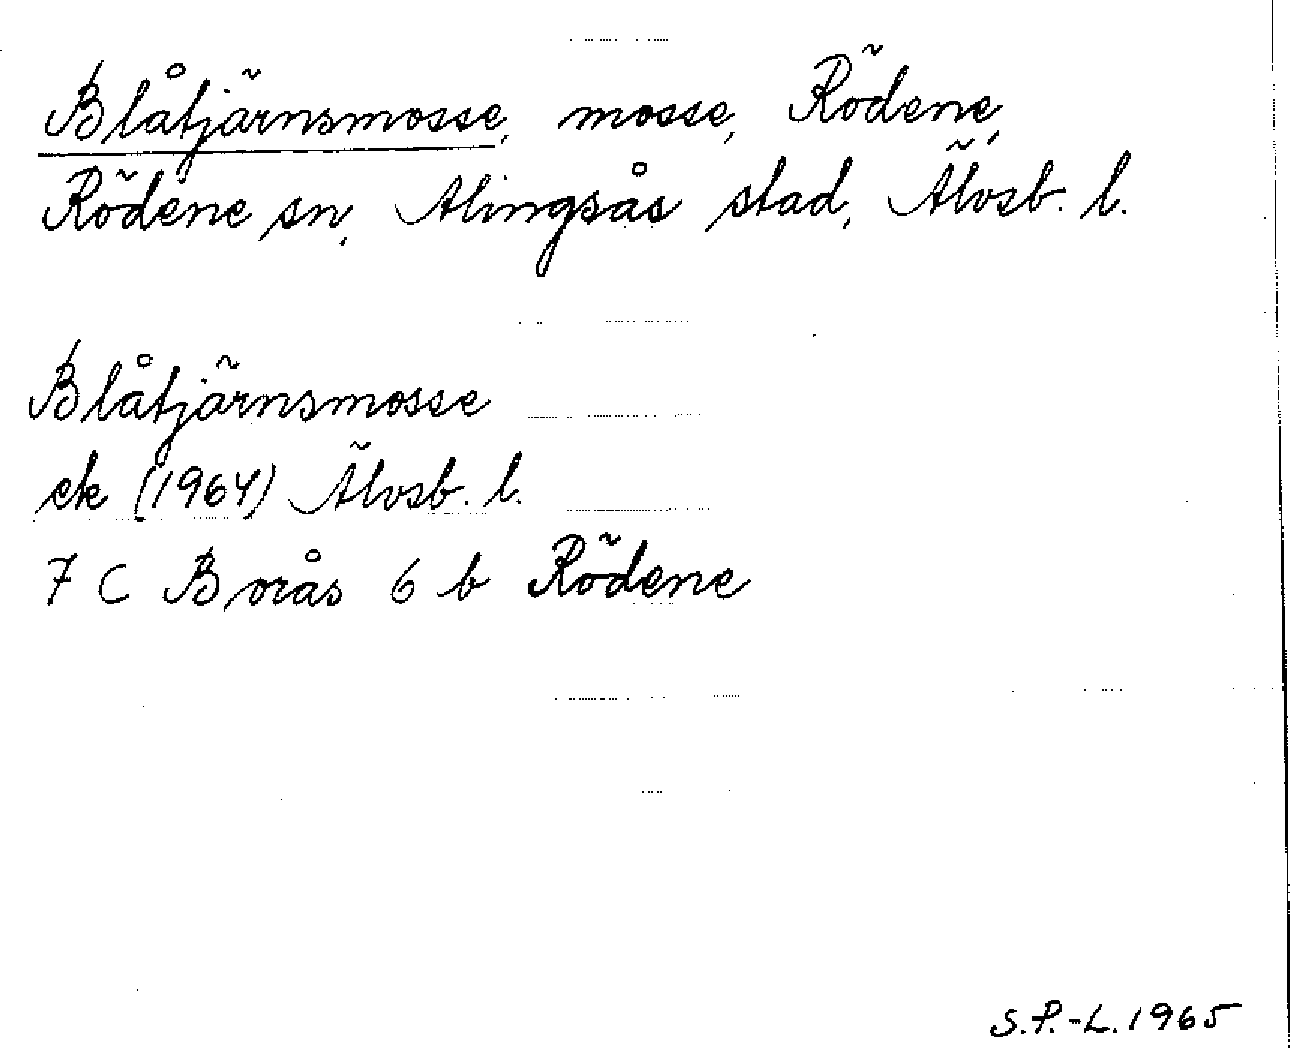 Blåtjärnsmosse, mosse, Rödene,
Rödene sn, Alingsås stad, Älvsb. l.
Blåtjärnsmosse
ek (1964) Älvsb. l.
7 C Borås 6 b Rödene
S.P.-L. 1965